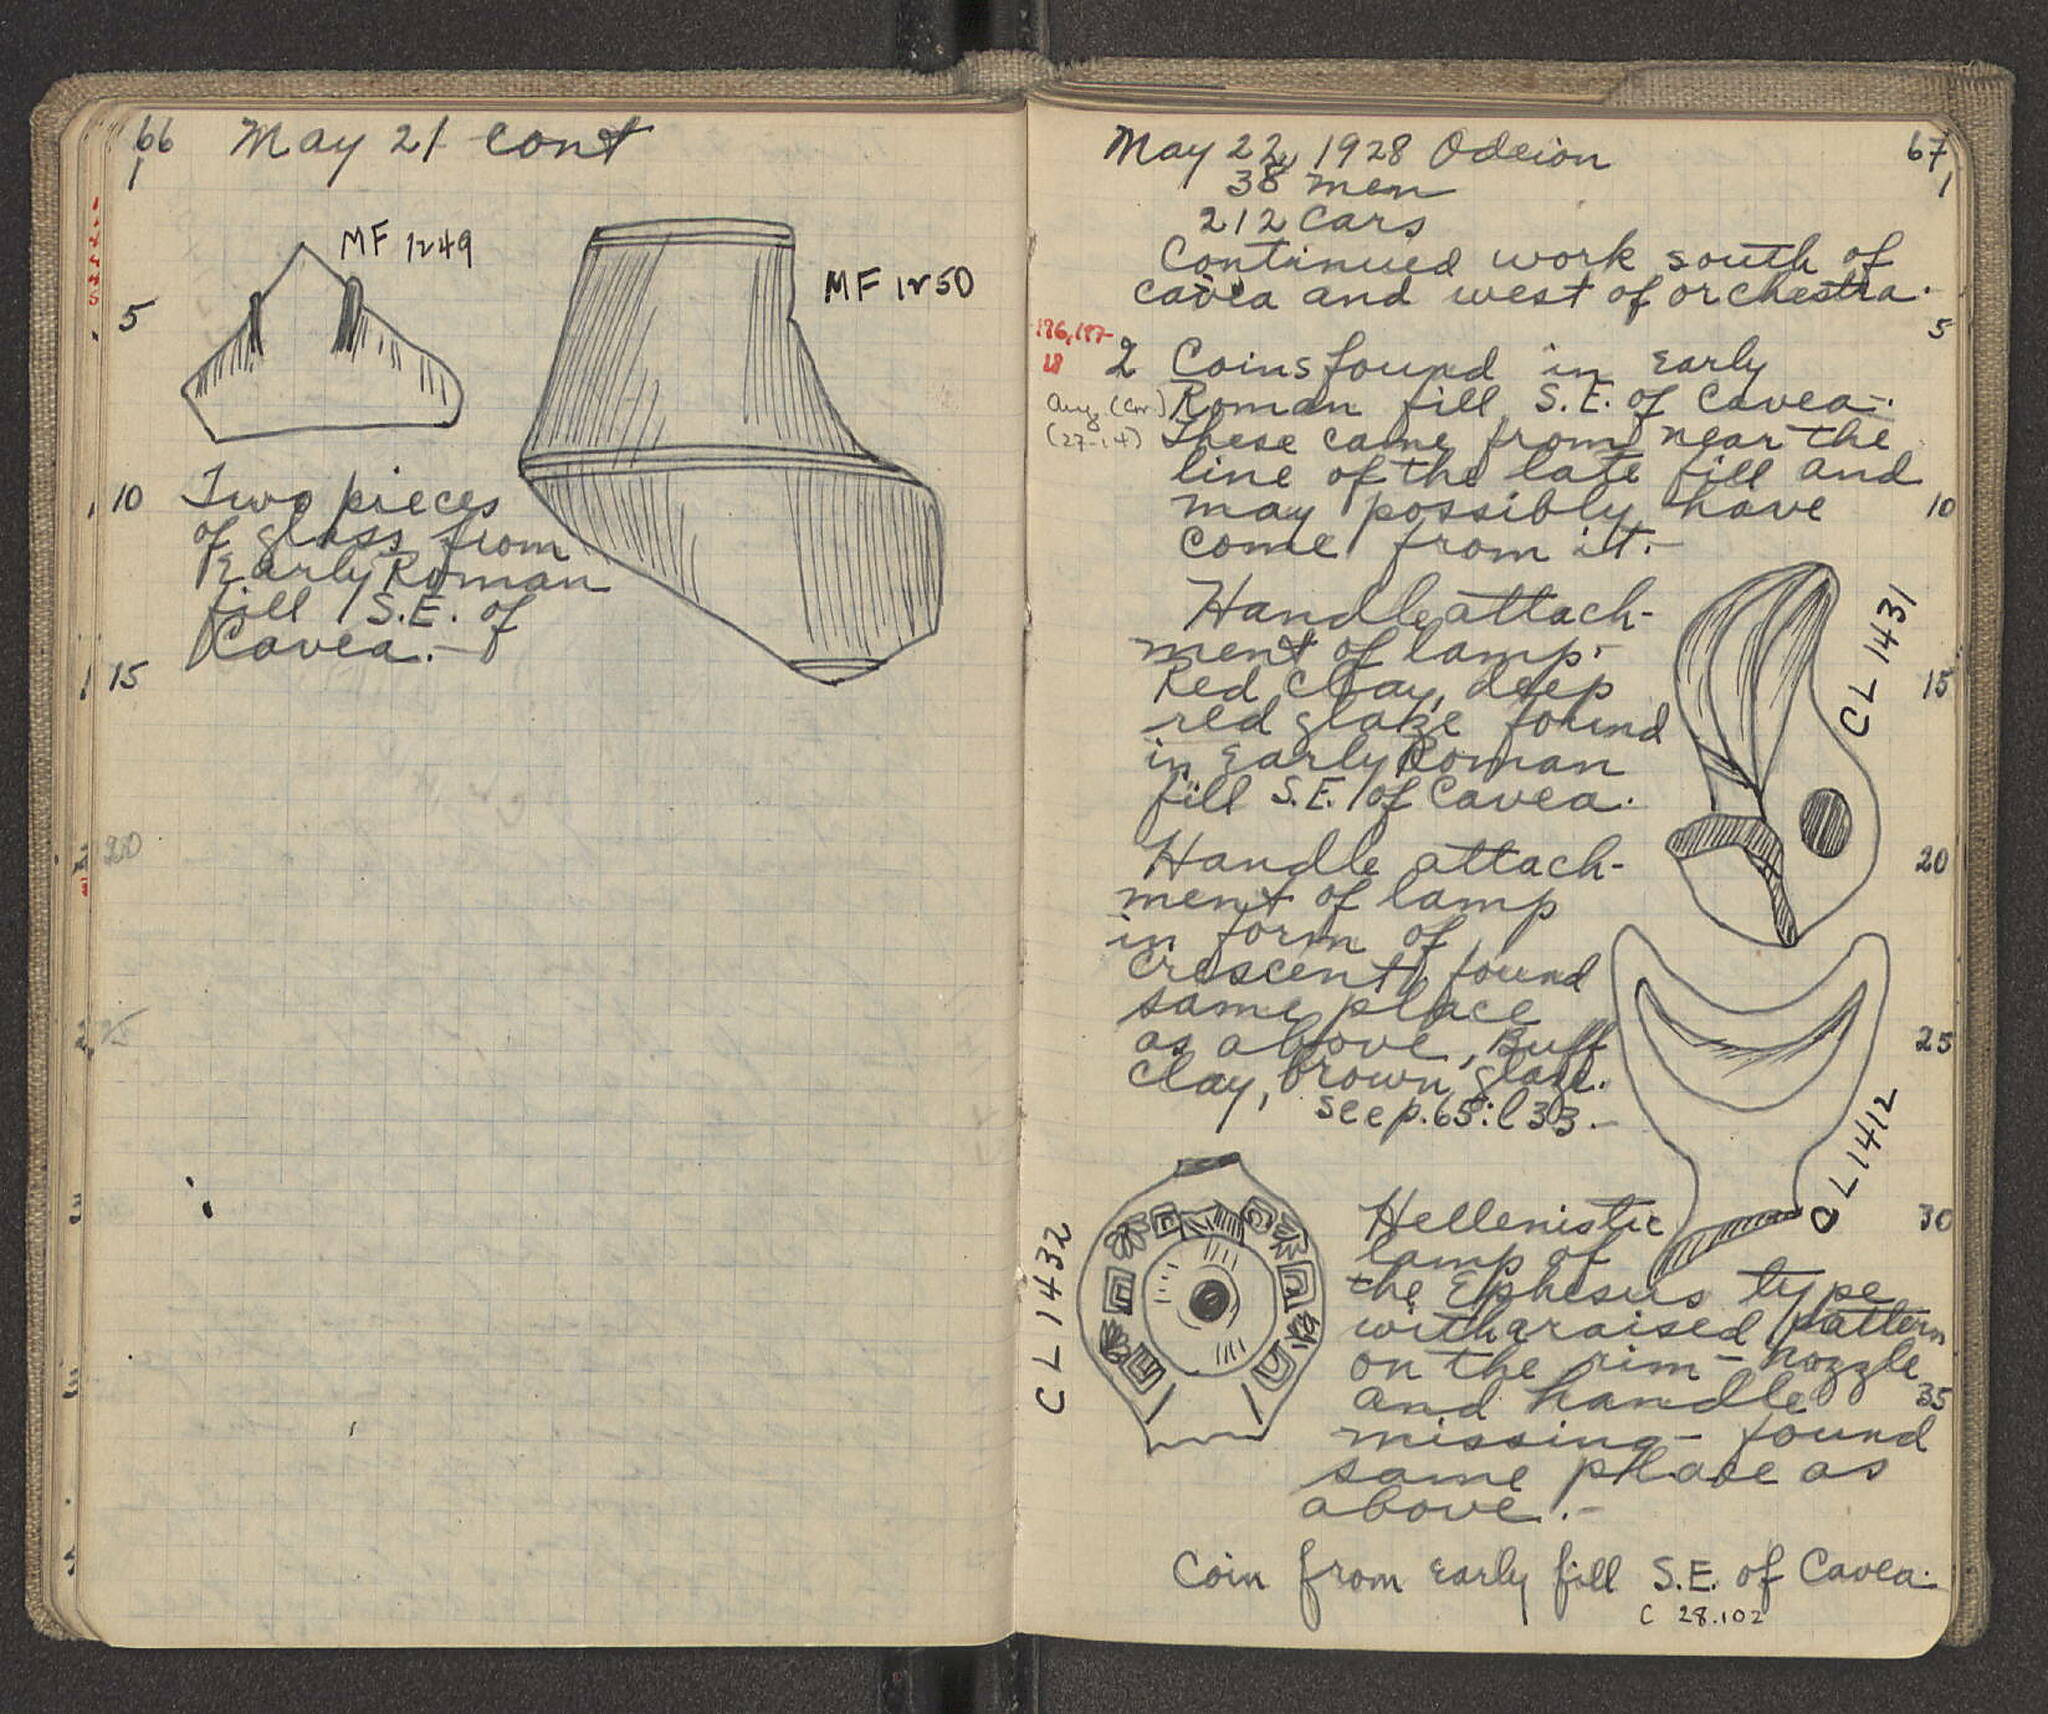 66 May 21 cont
1
MF 1249
MF 1250
5
10 Two pieces
of glass from
Early Roman
fill S.E. of
Cavea.-
15
20
25
May 22, 1928 Odeion 67
38 men 1
212 Cars
Continued work south of
cavea and west of orchestra.
5
186, 187
18
2 Coins found in Early
Aug. (Cor.) Roman fill S.E. of Cavea-.
(27-14) These came from near the
line of the late fill and
may possibly have 10
come from it.-
Handle attach-
ment of lamp.-
Red Clay, deep 15
red glaze found
in Early Roman
fill S.E. of Cavea.
CL 1431
Handle attach- 20
ment of lamp
in form of
crescent, found
same place
as above, Buff 25
Clay, brown glaze.
see p. 65: l 33.-
CL 1412
CL 1432
Hellenistic 30
lamp of
the Ephesus type
with a raised pattern
on the rim - nozzle
and handle 35
missing - found
same place as
above.-
Coin from Early fill S.E. of Cavea.
C 28.102